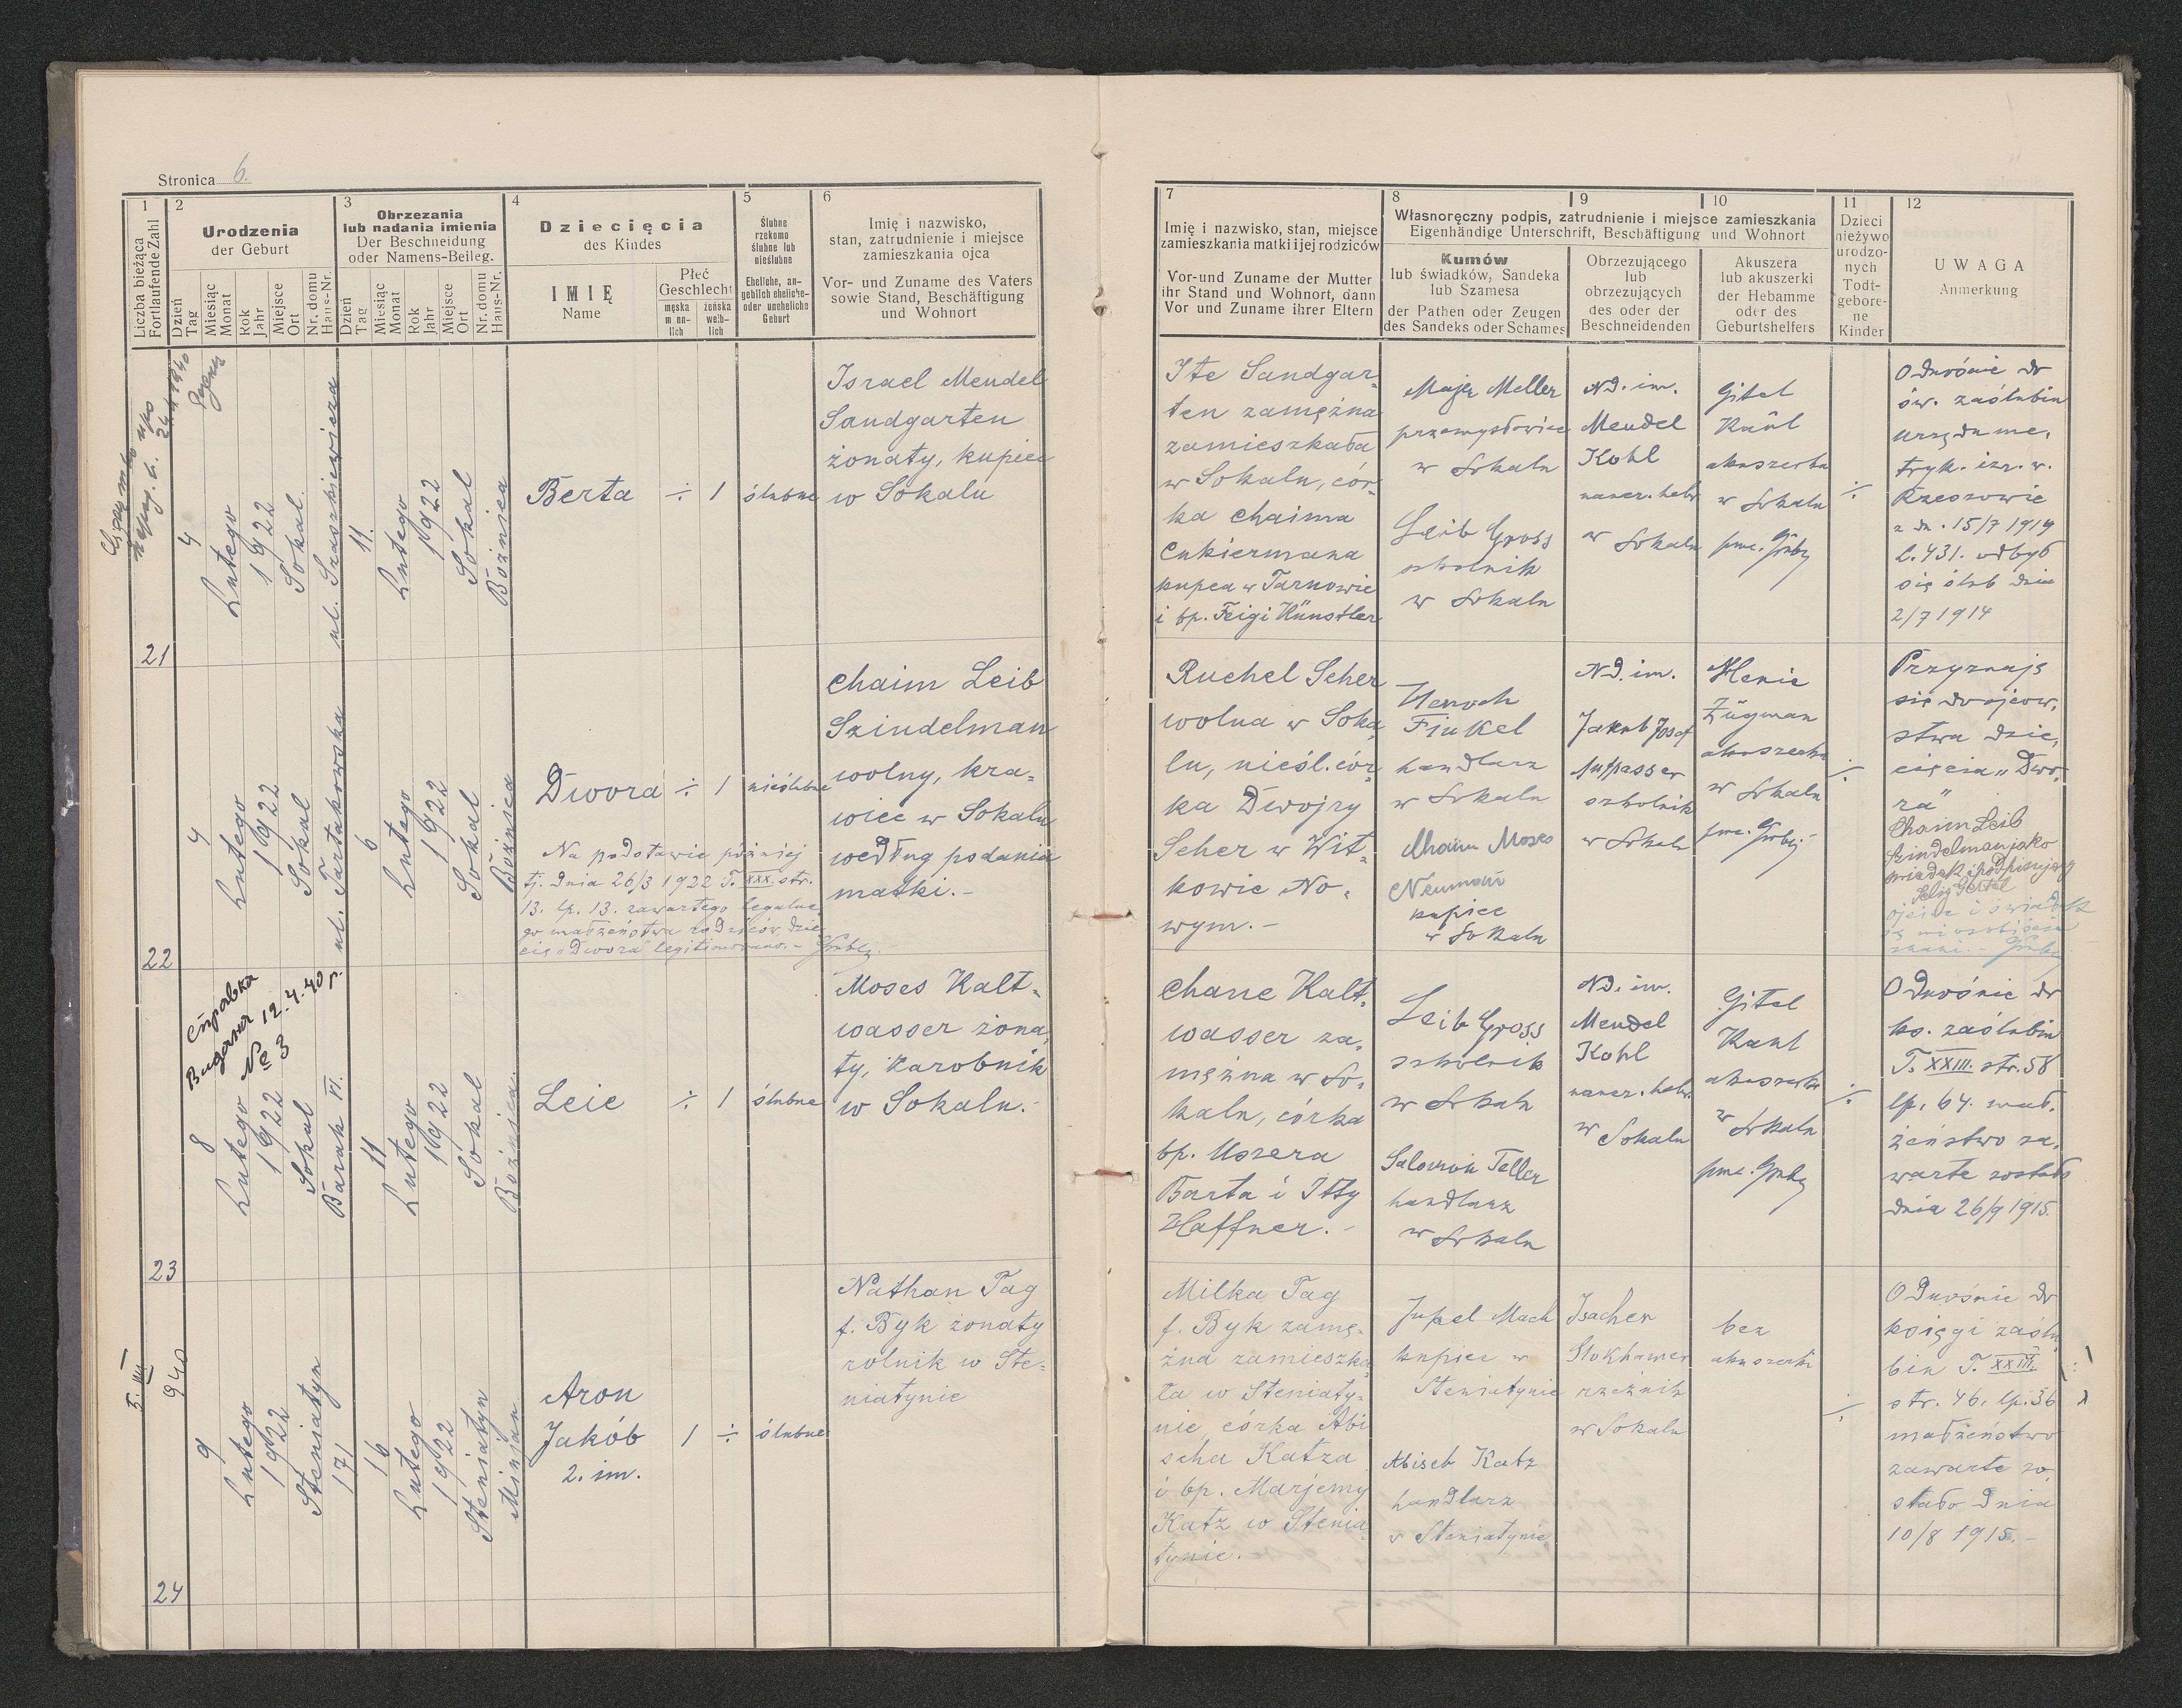 Stronica 6.
1
Liczba bieżąca
Fortlaufende Zahl
2
Urodzenia
der Geburt
Dzień
Tag
Miesiąc
Monat
Rok
Jahr
Miejsce
Ort
Nr. domu
Haus-Nr.
3
Obrzezania
lub nadania imienia
Der Beschneidung
oder Namens-Beileg.
Dzień
Tag
Miesiąc
Monat
Rok
Jahr
Miejsce
Ort
Nr. domu
Haus-Nr.
4
Dziecięcia
des Kindes
IMIĘ
Name
Płeć
Geschlecht
męska
männ-
lich
żeńska
weib-
lich
5
Ślubne
rzekomo
ślubne lub
nieślubne
Eheliche, an-
geblich eheliche-
oder uneheliche
Geburt
6
Imię i nazwisko,
stan, zatrudnienie i miejsce
zamieszkania ojca
Vor- und Zuname des Vaters
sowie Stand, Beschäftigung
und Wohnort
7
Imię i nazwisko, stan, miejsce
zamieszkania matki i jej rodziców
Vor-und Zuname der Mutter
ihr Stand und Wohnort, dann
Vor und Zuname ihrer Eltern
8
9
10
Własnoręczny podpis, zatrudnienie i miejsce zamieszkania
Eigenhändige Unterschrift, Beschäftigung und Wohnort
Kumów
lub świadków, Sandeka
lub Szamesa
der Pathen oder Zeugen
des Sandeks oder Schames
Obrzezującego
lub
obrzezujących
des oder der
Beschneidenden
Akuszera
lub akuszerki
der Hebamme
oder des
Geburtshelfers
11
Dzieci
nieżywo
urodzo-
nych
Todt-
gebore-
ne
Kinder
12
UWAGA
Anmerkung
21
4
Lutego
1922
Sokal
ul. Szaszkiewicza
11.
Lutego
1922
Sokal
Bożnica
Berta
÷
1
ślubne
Israel Mendel
Sandgarten
żonaty, kupiec
w Sokalu
Ite Sandgar-
ten zamężna
zamieszkała
w Sokalu, cór-
ka Chaima
Cukiermana
kupca w Tarnowie
i bp. Feigi Künstler
Majer Meller
przemysłowiec
w Sokalu
Leib Gross
szkolnik
w Sokalu
ND. im.
Mendel
Kohl
naucz. hebr.
w Sokalu
Gitel
Kaul
akuszerka
w Sokalu
÷
Odnośnie do
św. zaślubin
urzędu me-
tryk. izr. w.
Rzeszowie
z dn. 15/7 1914
L. 431. odbył
się ślub dnia
2/7 1914
22
4
Lutego
1922
Sokal
ul. Tartakowska
6
Lutego
1922
Sokal
Bożnica
Dwora
÷
1
nieślubne
Na podstawie później
tj. dnia 26/3 1922 T. XXX. str.
13. lp. 13. zawartego legalne-
go małżeństwa rodziców, dzie-
cię "Dwora" legitimowano. -
Chaim Leib
Szindelman
wolny, kra-
wiec w Sokalu
według podania
matki. -
Ruchel Scher
wolna w Soka-
lu, nieśl. cór-
ka Dwojry
Scher w Wit-
kowie No-
wym. -
Henoch
Finkel
handlarz
w Sokalu
Chaim Moses
Neuman
kupiec
w Sokalu
ND. im.
Jakub Josef
Aufpasser
szkolnik
w Sokalu
Henie
Zügman
akuszerka
w Sokalu
÷
Przyznaję
się do ojcow-
stwa dzie-
cięcia "Dwo-
ra"
Chaim Leib
Szindelman jako
23
Справка
Выдана 12.4.40 г.
№ 3
8
Lutego
1922
Sokal
Barak VI.
11
Lutego
1922
Sokal
Bożnica
Leie
÷
1
ślubne
Moses Kalt-
wasser żona-
ty, zarobnik
w Sokalu. -
Chane Kalt-
wasser za-
mężna w So-
kalu, córka
bp. Uszera
Barta i Itty
Haffner. -
Leib Gross
szkolnik
w Sokalu
Salomon Teller
handlarz
w Sokalu
ND. im.
Mendel
Kohl
naucz. hebr.
w Sokalu
Gitel
Kaul
akuszerka
w Sokalu
÷
Odnośnie do
ks. zaślubin
T. XXIII. str. 58
lp. 64. mał-
żeństwo za-
warte zostało
dnia 26/9 1915.
24
5. III
940
9
Lutego
1922
Steniatyn
171
16
Lutego
1922
Steniatyn
Minian
Aron
Jakób
2. im.
1
÷
ślubne
Nathan Tag
f. Byk żonaty
rolnik w Ste-
niatynie
Milka Tag
f. Byk zamę-
żna zamieszka-
ła w Steniaty-
nie córka Abi
scha Katza
i bp. Marjemy
Katz w Stenia-
tynie.
kupiec w
Steniatynie
Abisch Katz
handlarz
w Steniatynie
Isacher
Stokhamer
rzeźnik
w Sokalu
bez
akuszerki
÷
Odnośnie do
księgi zaślu-
bin T. XXIII.
str. 46. lp. 36
małżeństwo
zawarte zo-
stało dnia
10/8 1915. -